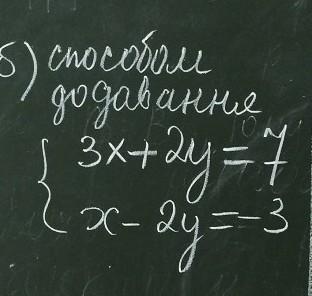 б) способом
додавання
3x+2y=7
x-2y=-3